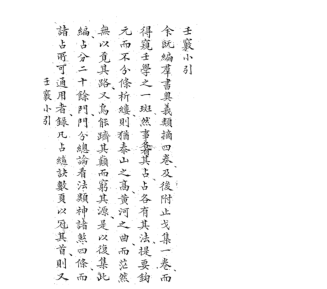 壬竅小引
余既編羣書異義類摘四卷及後附止戈集一卷而
得窺壬學之一斑然事各有其占占各有其法提要鈎
元而不分條析縷則猶泰山之高黃河之曲而茫然
無以覓其路又烏能躋其巔而窮其源是以復集此
編占分二十餘門門分總論看法顯神諸煞四條而
諸占所可通用者錄凡占總訣數頁以冠其首則又
壬竅小引